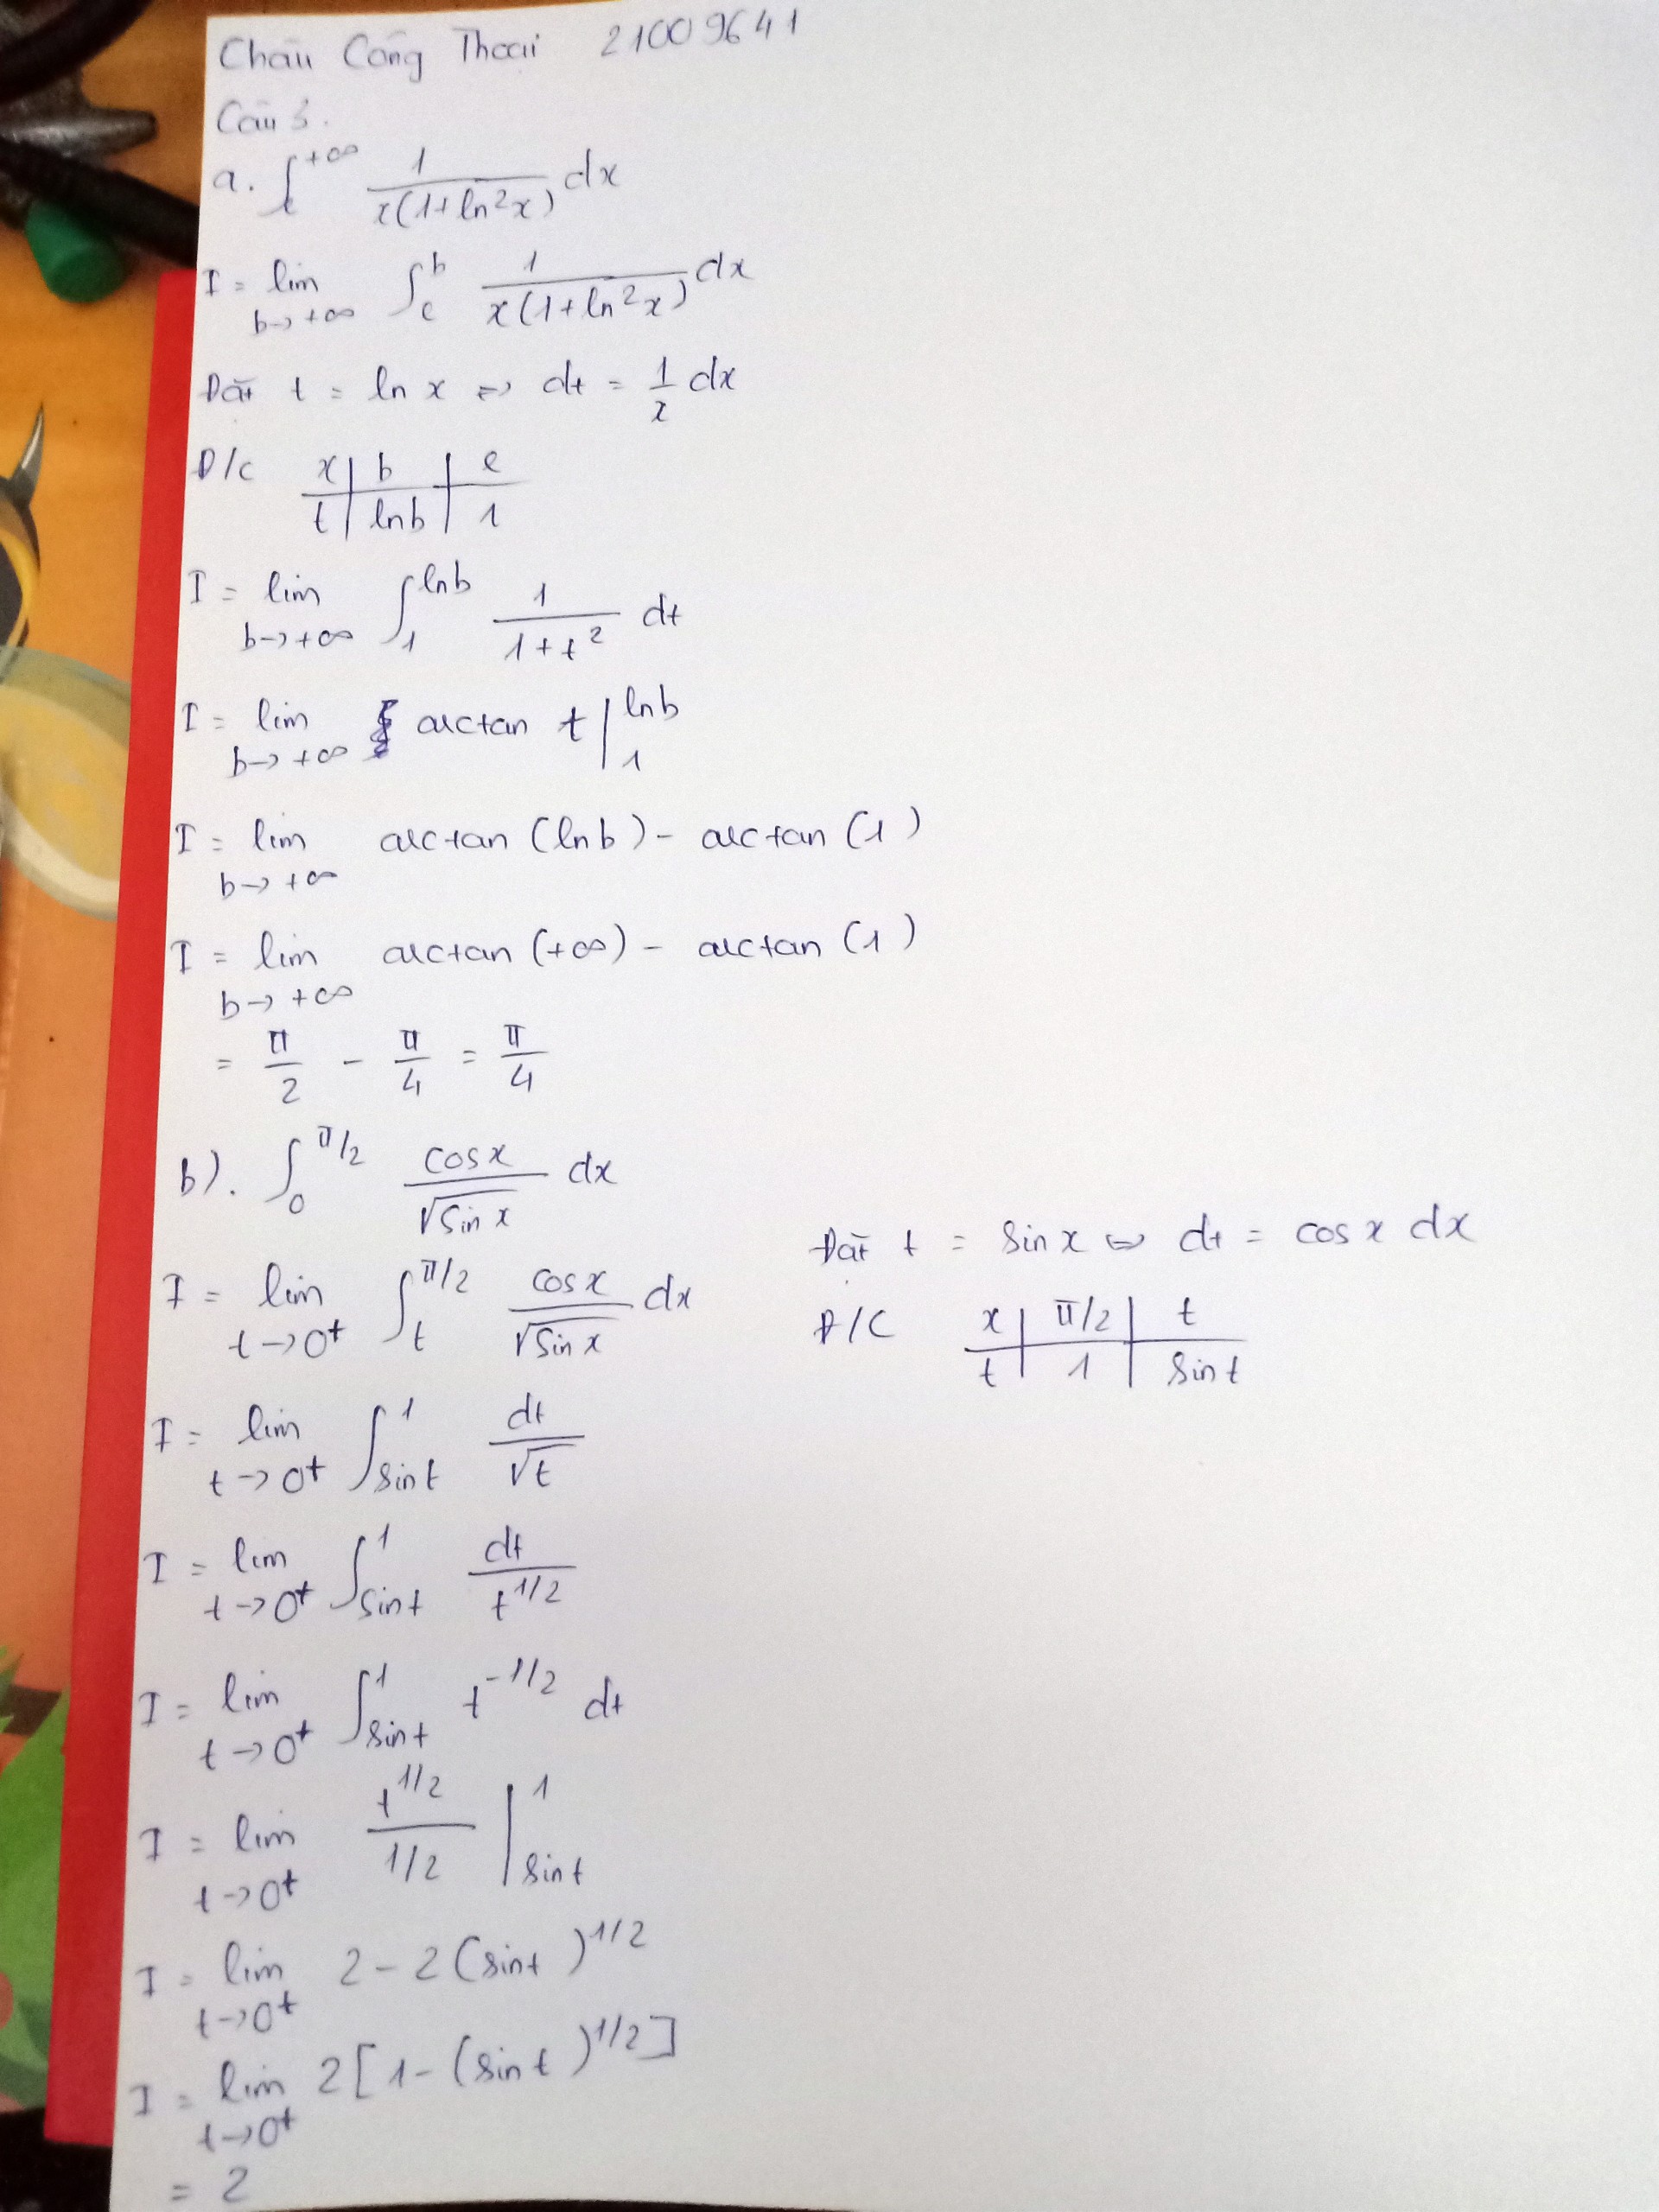 Châu Công Thoại 21009641
Câu 3.
a. ∫_e^{+∞} 1/(x(1+ln²x)) dx
I = lim_{b→+∞} ∫_e^b 1/(x(1+ln²x)) dx
Đặt t = ln x ⇔ dt = 1/x dx
Đ/C x | b | e
t | lnb | 1
I = lim_{b→+∞} ∫_1^{lnb} 1/(1+t²) dt
I = lim_{b→+∞} arctan t |_1^{lnb}
I = lim_{b→+∞} arctan (lnb) - arctan (1)
I = lim_{b→+∞} arctan (+∞) - arctan (1)
= π/2 - π/4 = π/4
b). ∫_0^{π/2} cosx/√sinx dx
I = lim_{t→0⁺} ∫_t^{π/2} cosx/√sinx dx
Đặt t = sinx ⇔ dt = cosx dx
Đ/C x | π/2 | t
t | 1 | sint
I = lim_{t→0⁺} ∫_{sint}^1 dt/√t
I = lim_{t→0⁺} ∫_{sint}^1 dt/t^{1/2}
I = lim_{t→0⁺} ∫_{sint}^1 t^{-1/2} dt
I = lim_{t→0⁺} t^{1/2}/(1/2) |_{sint}^1
I = lim_{t→0⁺} 2 - 2(sint)^{1/2}
I = lim_{t→0⁺} 2[1-(sint)^{1/2}]
= 2